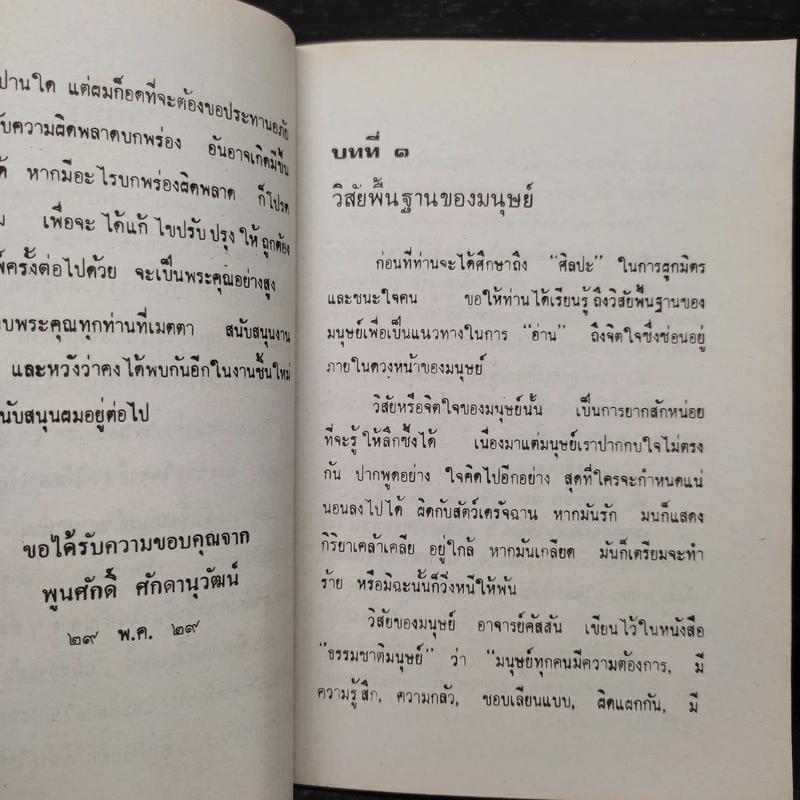 ปานใด แต่ผมก็อดที่จะต้องขอประทานอภัย
ับความผิดพลาดบกพร่อง อันอาจเกิดมีขึ้น
ด้ หากมีอะไรบกพร่องผิดพลาด ก็โปรด
เพื่อจะได้แก้ไขปรับปรุงให้ถูกต้อง
พ์ครั้งต่อไปด้วย จะเป็นพระคุณอย่างสูง
อบพระคุณทุกท่านที่เมตตา สนับสนุนงาน
และหวังว่าคงได้พบกันอีกในงานชิ้นใหม่
นับสนุนผมอยู่ต่อไป
ขอได้รับความขอบคุณจาก
พูนศักดิ์ ศักดานุวัฒน์
๒๙ พ.ค. ๒๙
บทที่ ๑
วิสัยพื้นฐานของมนุษย์
ก่อนที่ท่านจะได้ศึกษาถึง “ศิลปะ” ในการผูกมิตร
และชนะใจคน ขอให้ท่านได้เรียนรู้ถึงวิสัยพื้นฐานของ
มนุษย์เพื่อเป็นแนวทางในการ “อ่าน” ถึงจิตใจซึ่งซ่อนอยู่
ภายในดวงหน้าของมนุษย์
วิสัยหรือจิตใจของมนุษย์นั้น เป็นการยากสักหน่อย
ที่จะรู้ให้ลึกซึ้งได้ เนื่องมาแต่มนุษย์เราปากกบใจไม่ตรง
กัน ปากพูดอย่าง ใจคิดไปอีกอย่าง สุดที่ใครจะกำหนดแน่
นอนลงไปได้ ผิดกับสัตว์เดรัจฉาน หากมันรัก มนก็แสดง
กิริยาเคล้าเคลีย อยู่ใกล้ หากมันเกลียด มันก็เตรียมจะทำ
ร้าย หรือมิฉะนั้นก็วิ่งหนีให้พ้น
วิสัยของมนุษย์ อาจารย์คัสสัน เขียนไว้ในหนังสือ
“ธรรมชาติมนุษย์” ว่า “มนุษย์ทุกคนมีความต้องการ, มี
ความรู้สึก, ความกลัว, ชอบเลียนแบบ, ผิดแผกกัน, มี